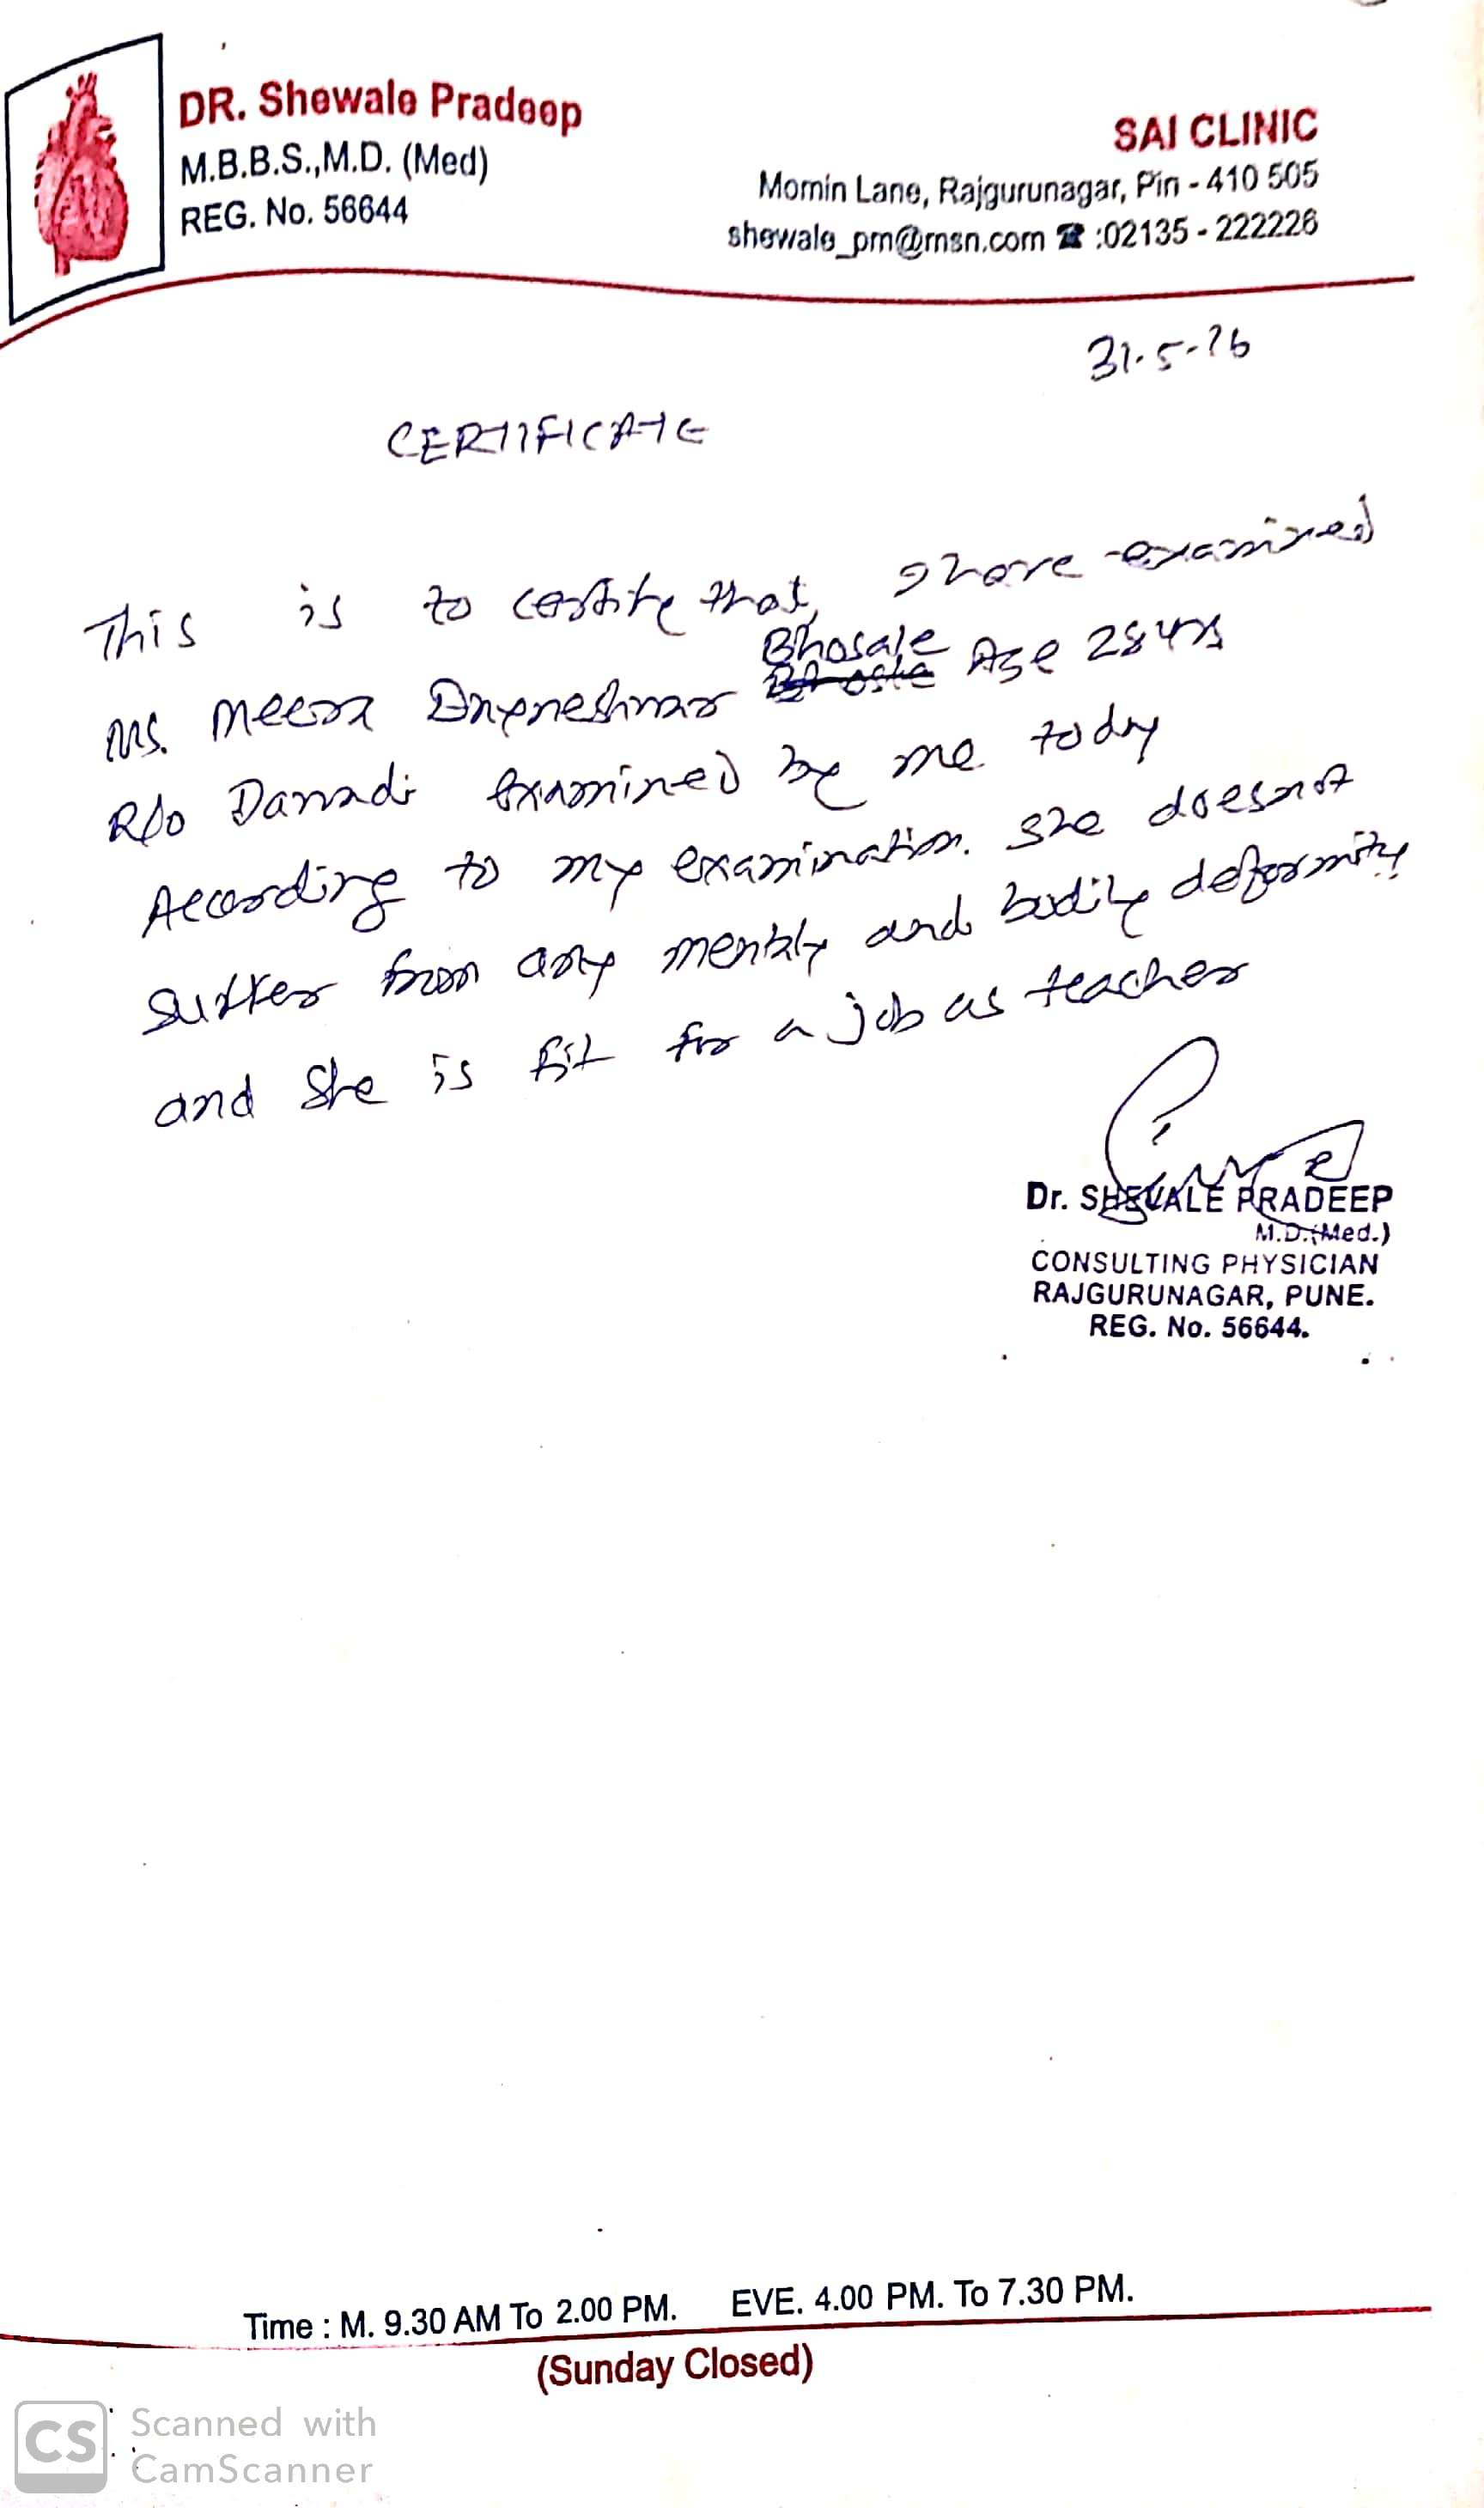 DR. Shewale Pradeep
M.B.B.S.,M.D. (Med)
REG. No. 56644
SAI CLINIC
Momin Lane, Rajgurunagar, Pin - 410 505
shewale_pm@msn.com ☎ :02135 - 222226
31-5-26
CERTIFICATE
This is to certify that, I have examined
Ms. Meera Dnyneshwar Bhosale Age 28 yrs
R/o Davadi Examined by me today
According to my examination. She doesnot
suffer from any mentaly and bodily deformity
and she is fit for a job as teacher
Dr. SHEVALE PRADEEP
M.D.(Med.)
CONSULTING PHYSICIAN
RAJGURUNAGAR, PUNE.
REG. No. 56644.
Time : M. 9.30 AM To 2.00 PM. EVE. 4.00 PM. To 7.30 PM.
(Sunday Closed)
CS Scanned with
CamScanner